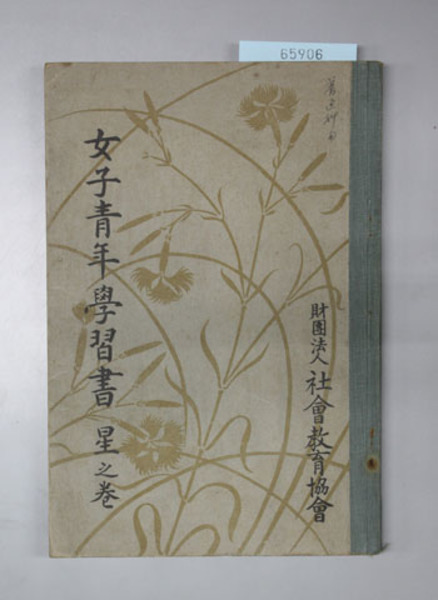 65906
財團法人 社會教育協會
女子青年學習書 星之巻